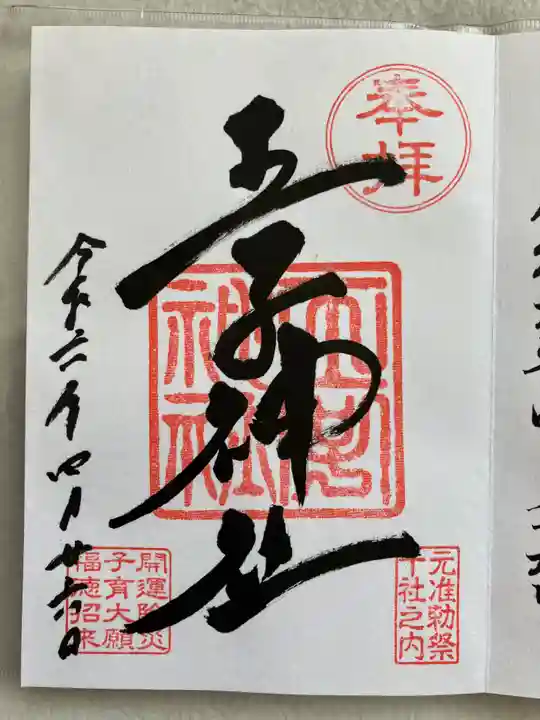 奉拝
王子神社
王子
神社
元准勅祭
十社之内
開運除災
子育大願
福徳招来
令和六年四月廿日